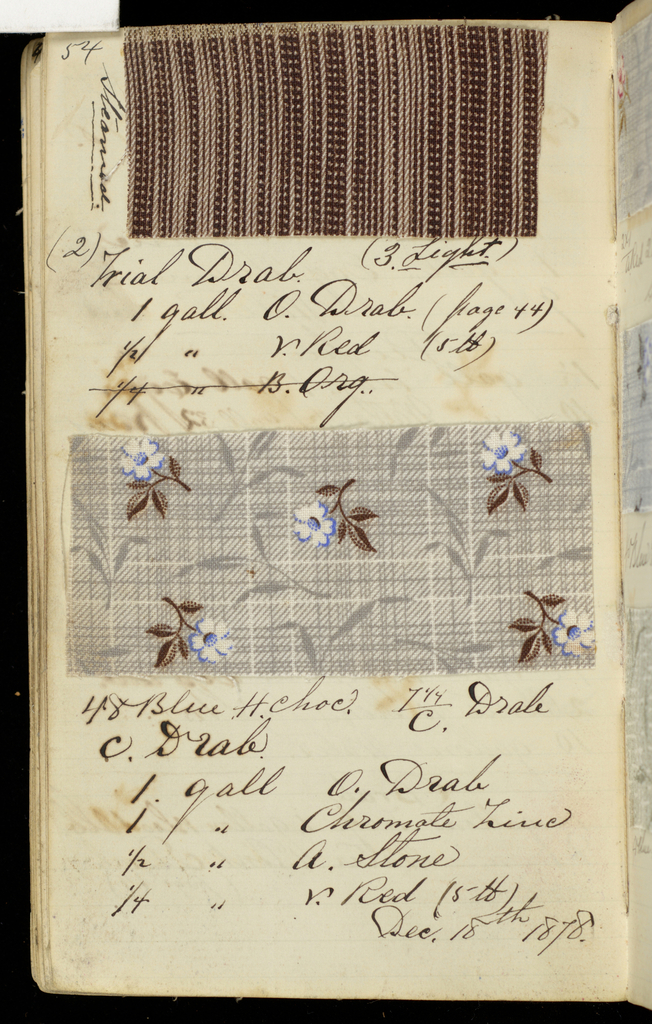 54
Steamed.
(2) (3. Light.)
Trial Drab.
1 gall. O. Drab. (page 44)
1/2 " V. Red (5 lb)
1/4 " B. Org.
48 Blue H. Choc. C. Drab
C. Drab
1. gall O. Drab
1 " Chromate Zinc
1/2 " A. Stone
1/4 " V. Red (5 lb)
Dec. 18th 1878.